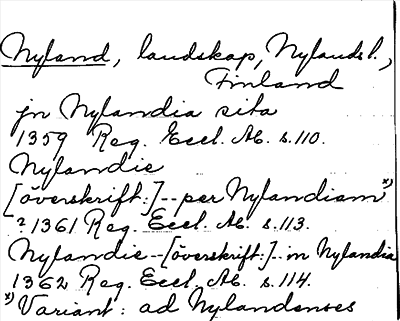 Nyland, landskap, Nylands l.,
Finland
jn Nylandia sita
1359 Reg. Eccl. Ab. s. 110.
Nylandie
[överskrift:]--per Nylandiam x)
? 1361 Reg. Eccl. Ab. s. 113.
Nylandie--[överskrift:]--in Nylandia
1362 Reg. Eccl. Ab. s. 114.
x) Variant: ad Nylandenses